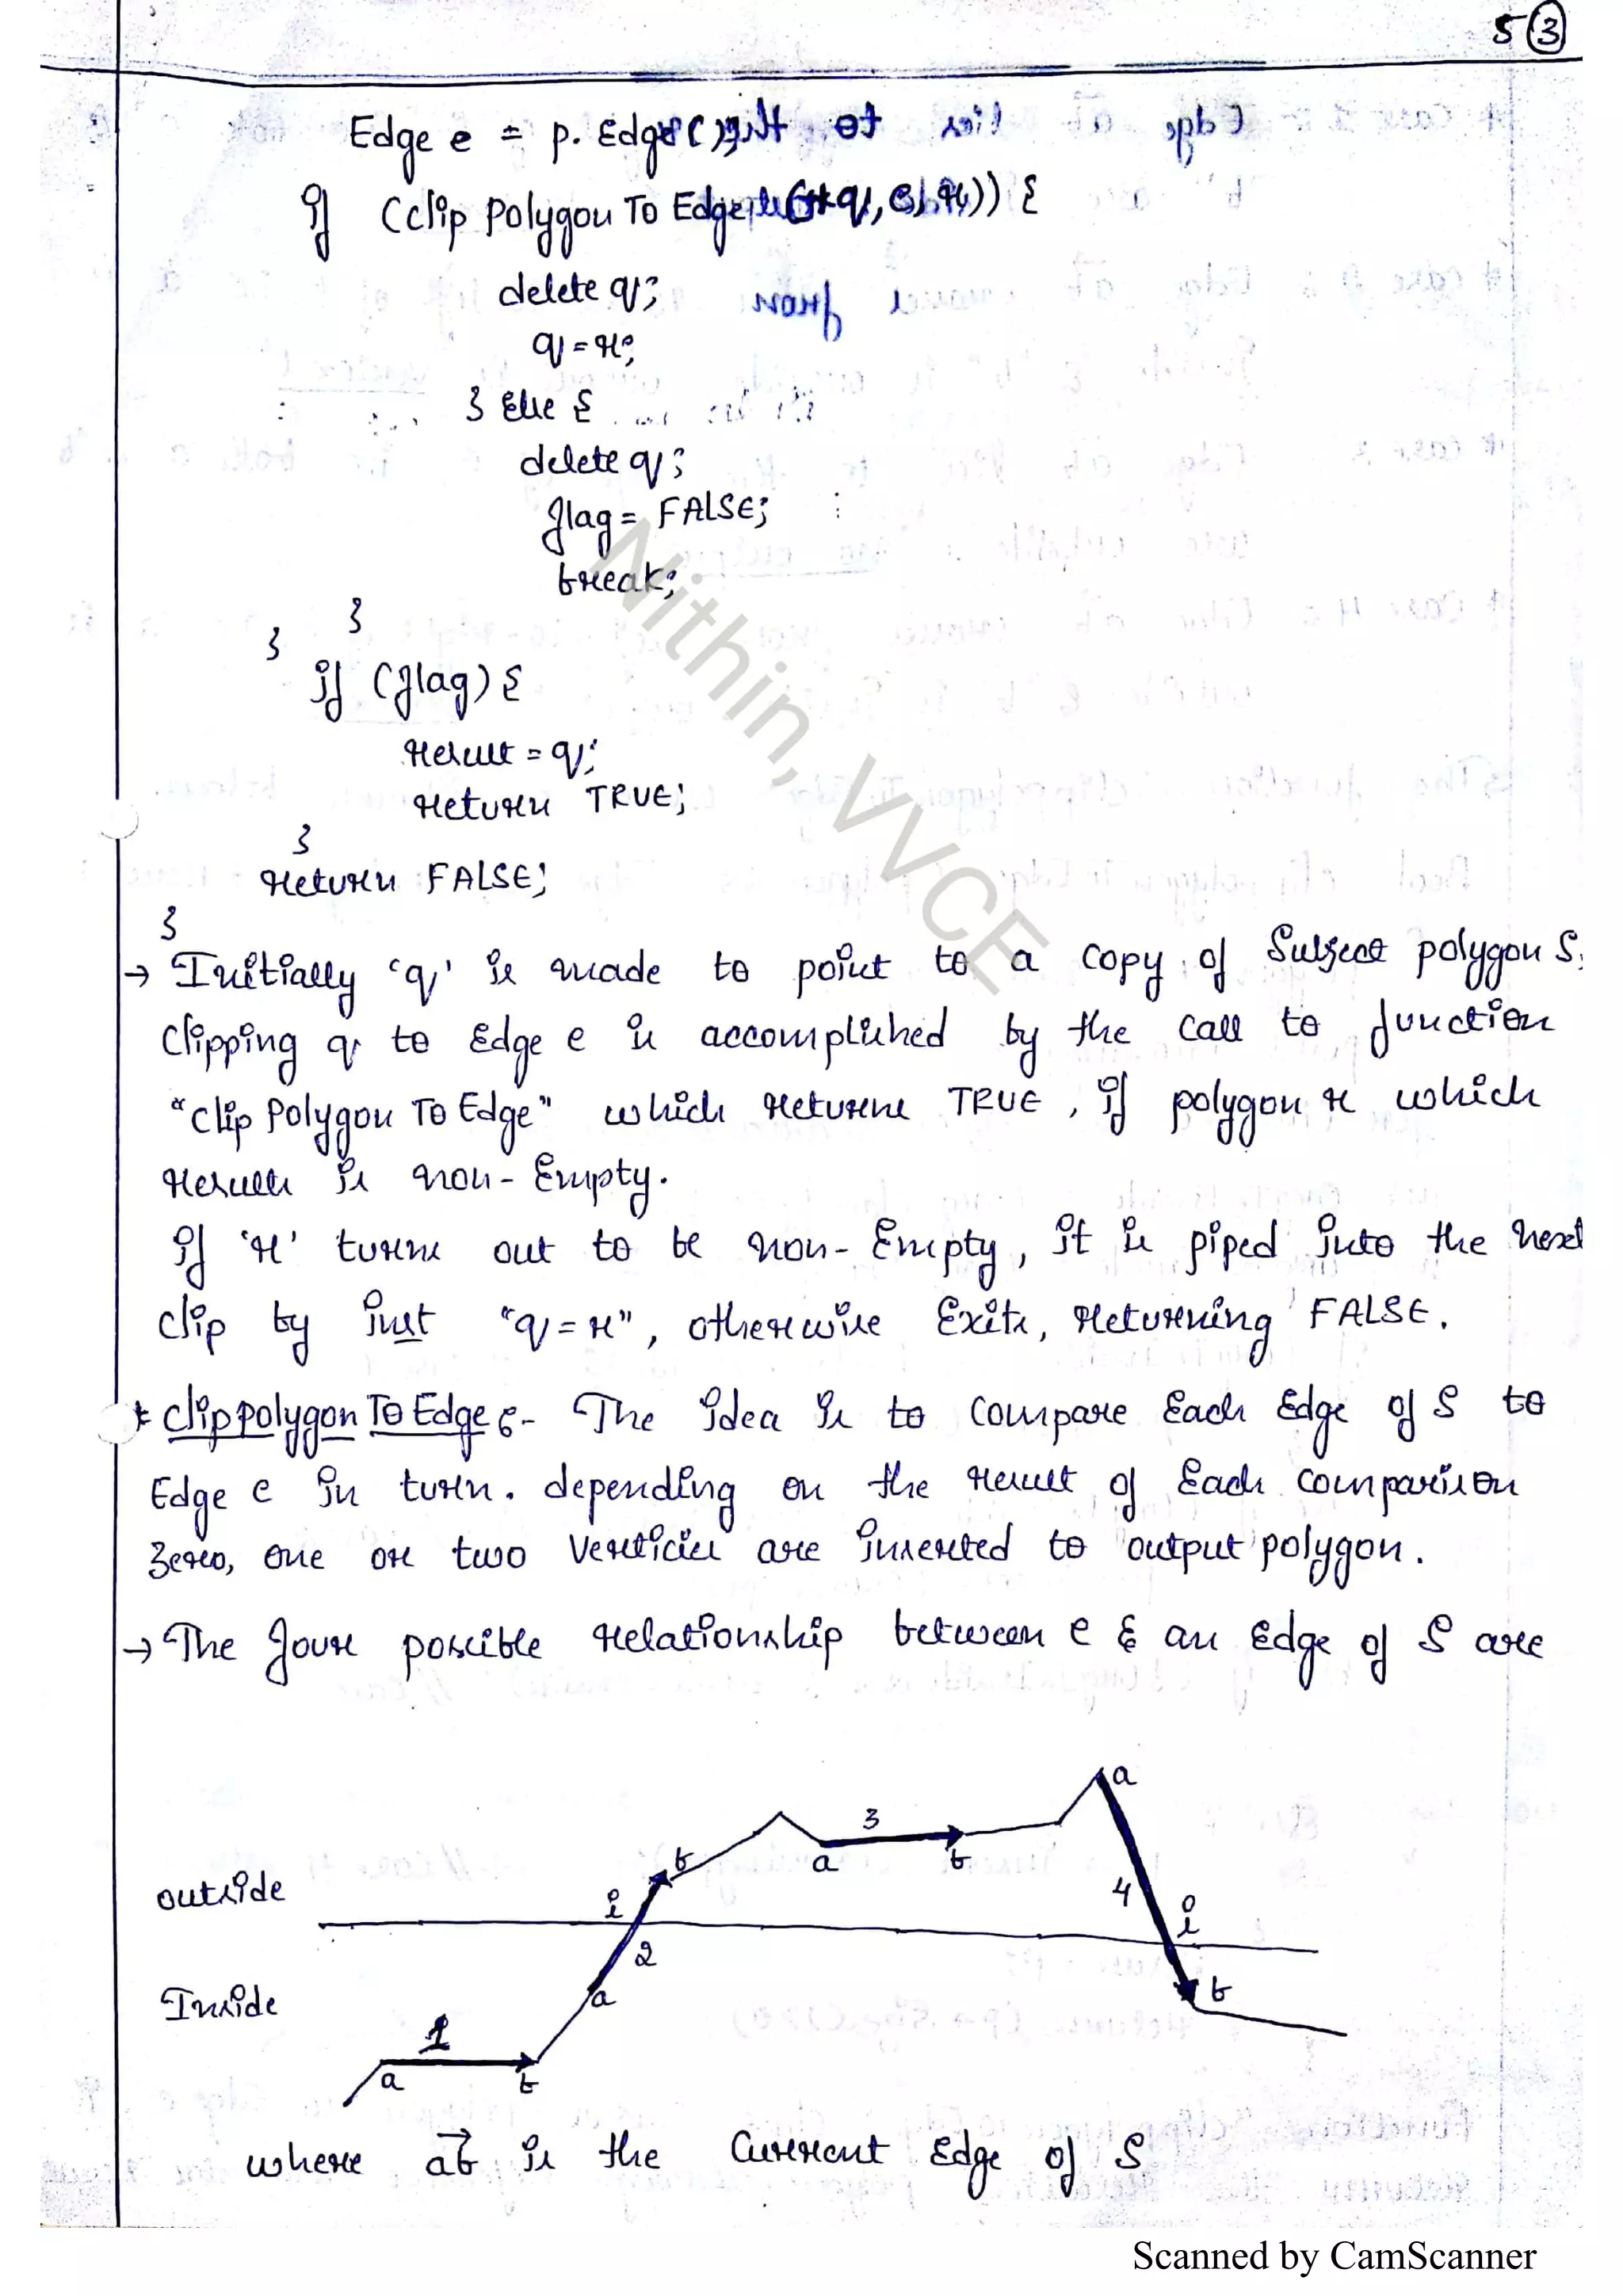 5 3
Edge e = p. Edge();
if (clip Polygon To Edge (*q, e, r)) {
delete q;
q = r;
} Else {
delete q;
flag = FALSE;
break;
}
}
if (flag) {
Result = q;
return TRUE;
}
return FALSE;
}
→ Initially 'q' is made to point to a copy of Subject polygon S.
Clipping q to Edge e is accomplished by the call to function
"Clip Polygon To Edge" which returns TRUE, if polygon r which
Results is non-Empty.
if 'r' turns out to be non-Empty, it is piped into the next
clip by just "q = r", otherwise Exits, Returning FALSE.
* clip polygon To Edge :- The idea is to compare Each Edge of S to
Edge e in turn. depending on the result of Each comparison
Zero, one or two verticies are inserted to output polygon.
→ The four possible relationship between e & an Edge of S are
a
3
a b
b
outside
i
4
i
2
Inside
a
b
1
a b
where ab is the Current Edge of S
Nithin, VVCE
Scanned by CamScanner